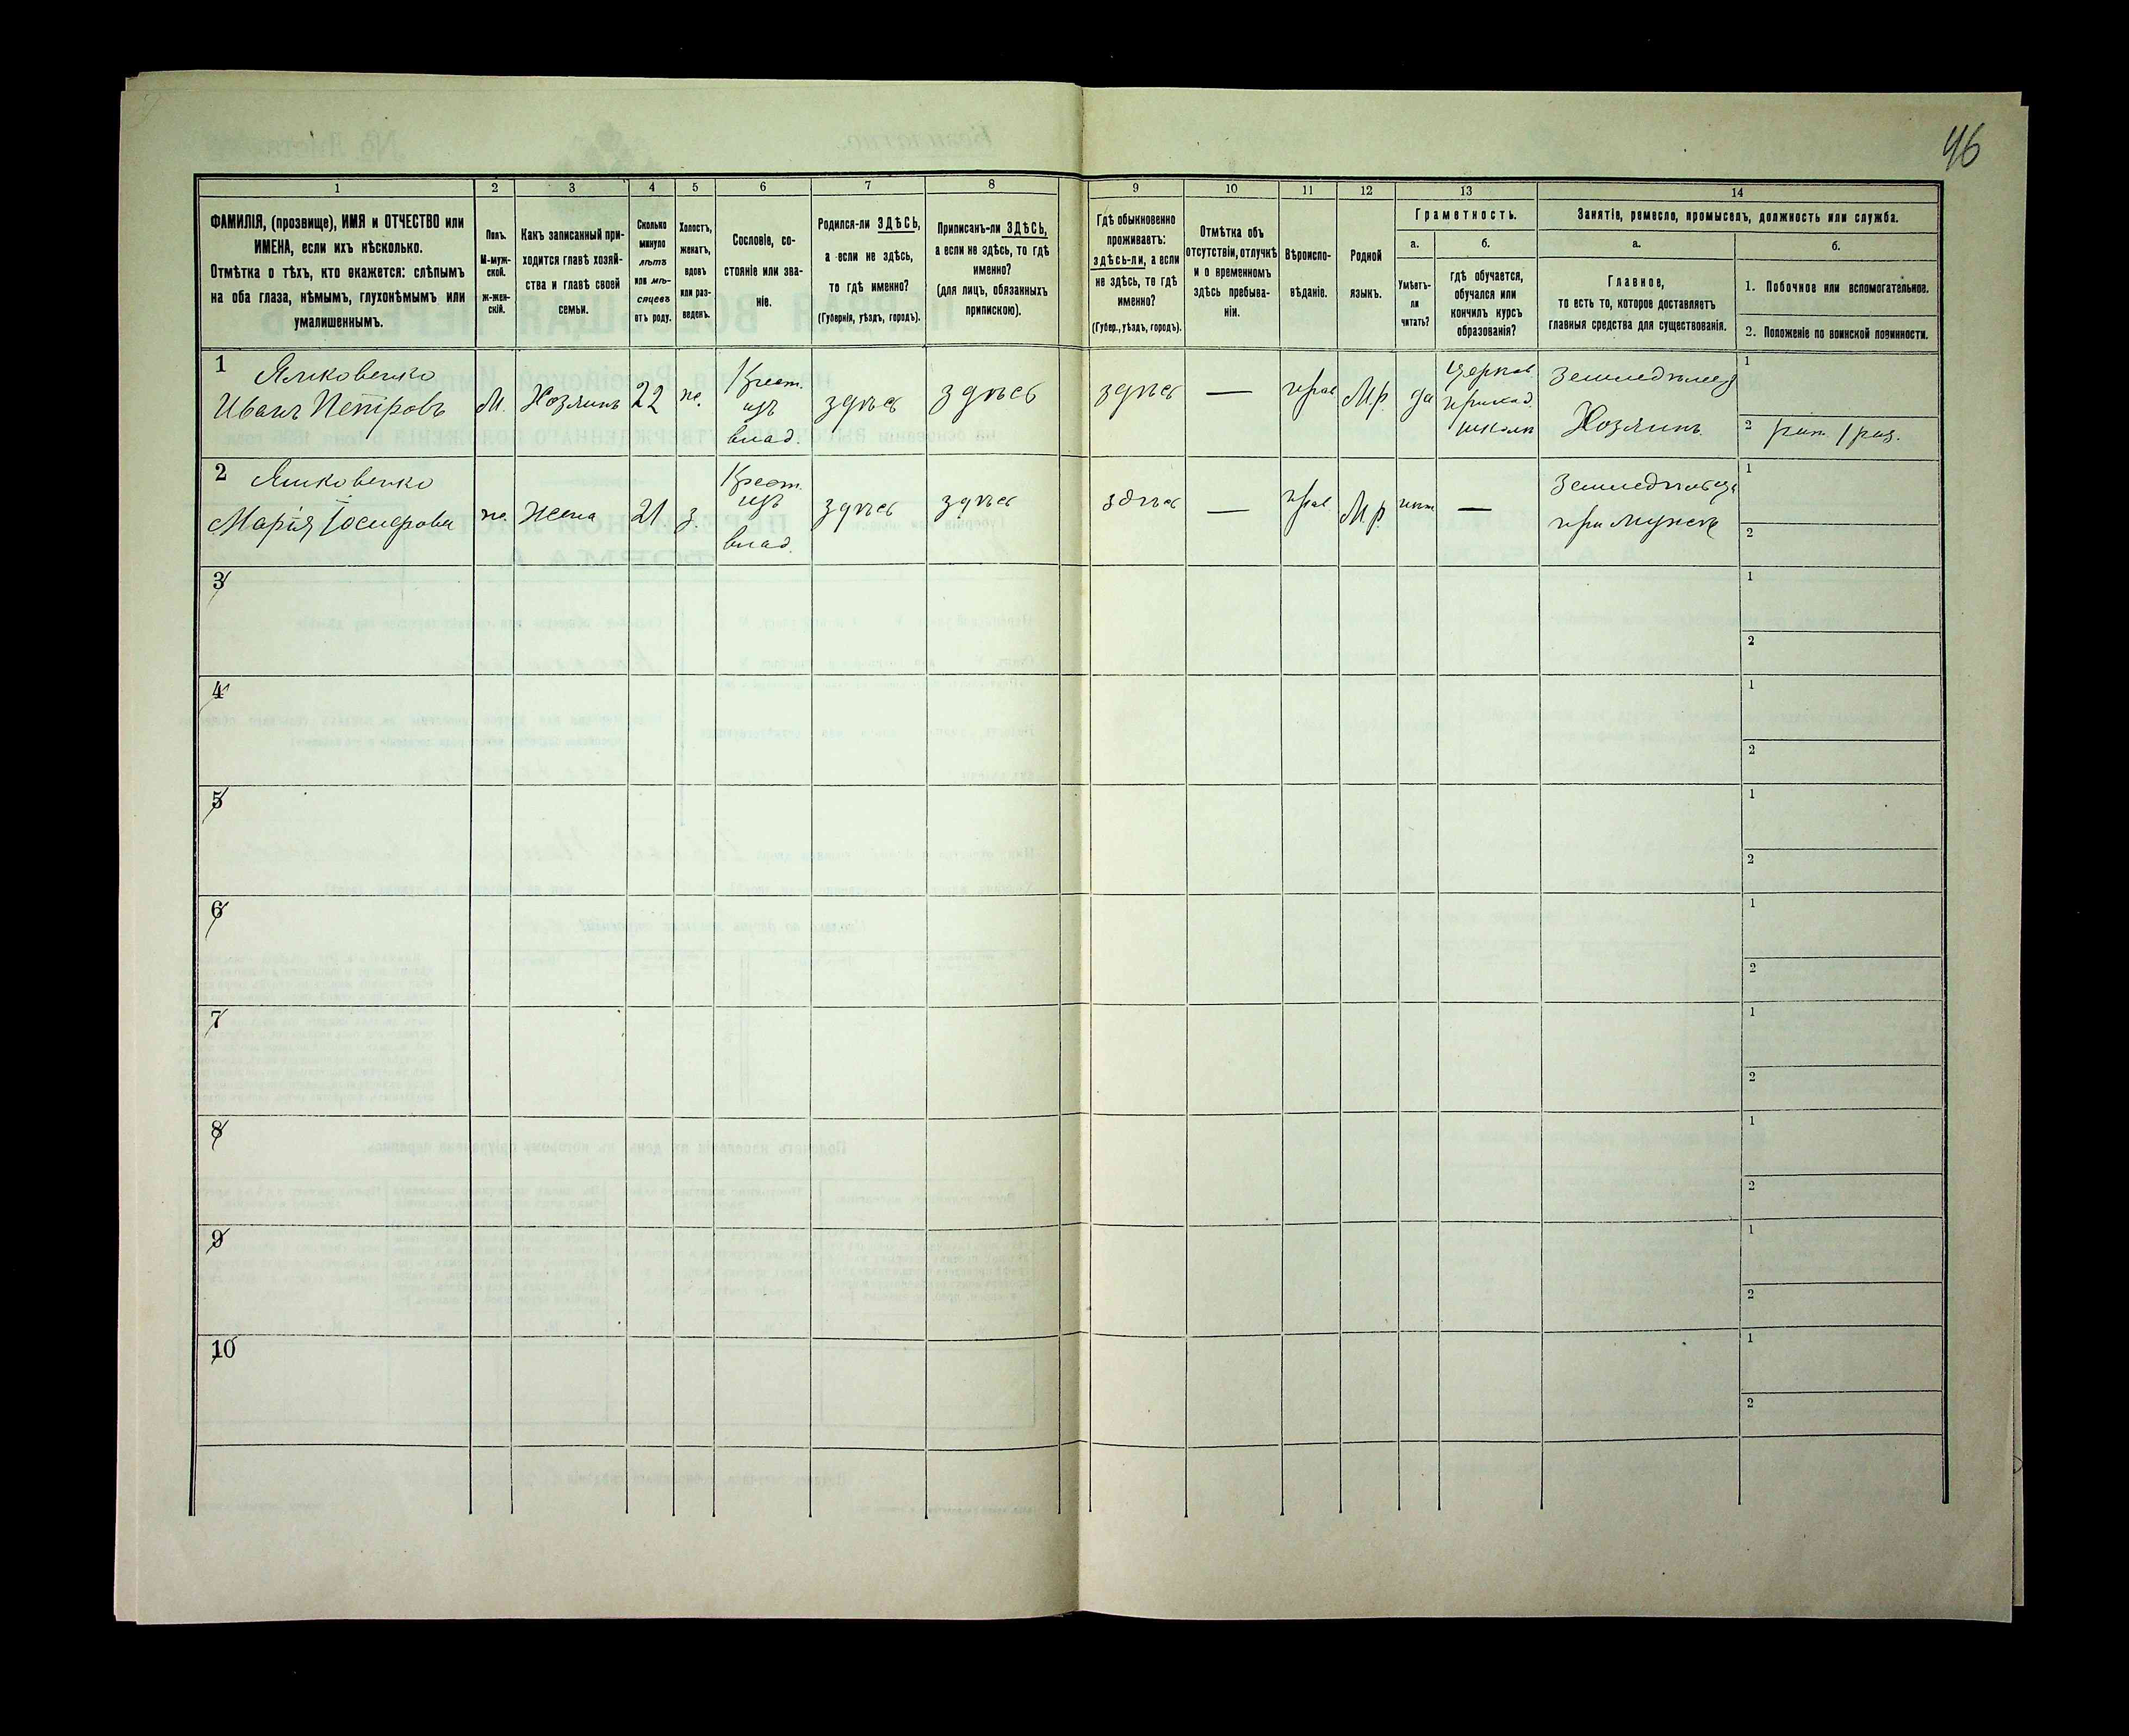 46
1 2 3 4 5 6 7 8 9 10 11 12 13 14
ФАМИЛІЯ, (прозвище), ИМЯ и ОТЧЕСТВО или
ИМЕНА, если ихъ нѣсколько.
Отмѣтка о тѣхъ, кто окажется: слѣпымъ
на оба глаза, нѣмымъ, глухонѣмымъ или
умалишеннымъ.
Полъ.
М-муж-
ской.
ж-жен-
скій.
Какъ записанный при-
ходится главѣ хозяй-
ства и главѣ своей
семьи.
Сколько
минуло
лѣтъ
или мѣ-
сяцевъ
отъ роду.
Холостъ,
женатъ,
вдовъ
или раз-
веденъ.
Сословіе, со-
стояніе или зва-
ніе.
Родился-ли ЗДѢСЬ,
а если не здѣсь,
то гдѣ именно?
(Губернія, уѣздъ, городъ).
Приписанъ-ли ЗДѢСЬ,
а если не здѣсь, то гдѣ
именно?
(для лицъ, обязанныхъ
припискою).
Гдѣ обыкновенно
проживаетъ:
здѣсь-ли, а если
не здѣсь, то гдѣ
именно?
(Губер., уѣздъ, городъ).
Отмѣтка объ
отсутствіи, отлучкѣ
и о временномъ
здѣсь пребыва-
ніи.
Вѣроиспо-
вѣданіе.
Родной
языкъ.
Грамотность.
а.
Умѣетъ-
ли
читать?
б.
гдѣ обучается,
обучался или
кончилъ курсъ
образованія?
Занятіе, ремесло, промыселъ, должность или служба.
а.
Главное,
то есть то, которое доставляетъ
главныя средства для существованія.
б.
1. Побочное или вспомогательное.
2. Положеніе по воинской повинности.
1
Яшковенко
Иванъ Петровъ
М.
Хозяинъ
22
ж.
Крест.
изъ
влад.
здѣсь
здѣсь
здѣсь
—
прав
М.р.
да
Церков
приход.
школѣ
Земледѣлецъ
Хозяинъ.
1
2 рат. 1 раз.
2
Яшковенко
Марія Іосифова
ж.
Жена
21
з.
Крест.
изъ
влад.
здѣсь
здѣсь
здѣсь
—
прав
М.р.
нѣт
—
Земледѣльца
при мужѣ
1
2
3
1
2
4
1
2
5
1
2
6
1
2
7
1
2
8
1
2
9
1
2
10
1
2